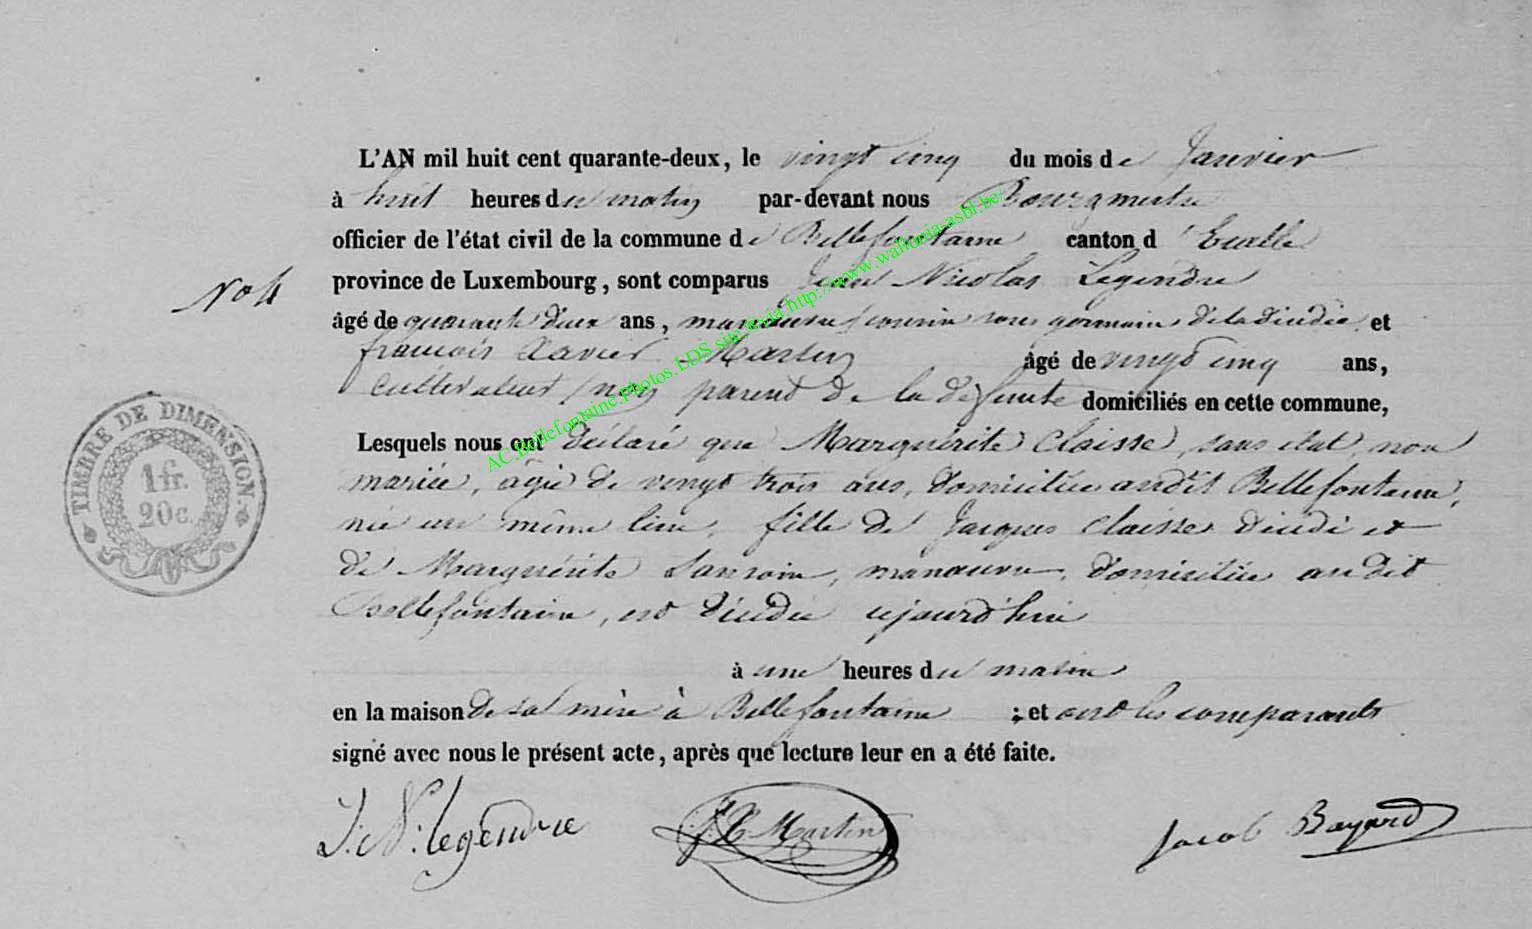 L'AN mil huit cent quarante-deux, le vingt cinq du mois de Janvier
à huit heures du matin par-devant nous Bourgmestre
officier de l'état civil de la commune de Bellefontaine canton d'Etalle
province de Luxembourg, sont comparus Jean Nicolas Legendre
No 4
âgé de quarante deux ans, manœuvre, cousin sous germain de la décédée, et
françois Xavier Martin âgé de vingt cinq ans,
cultivateur, non parent de la défunte domiciliés en cette commune,
Lesquels nous ont déclaré que Marguérite Claisse, sans état, non
mariée, âgée de vingt trois ans, domiciliée audit Bellefontaine,
née au même lieu, fille de Jacques Claisse décédé et
de Marguérite, manœuvre, domiciliée audit
Bellefontaine, est décédée aujourd'hui
à une heures du matin
en la maison de sa mère à Bellefontaine ; et ont les comparants
signé avec nous le présent acte, après que lecture leur en a été faite.
J: N: legendre F X Martin Jacob Bayard
TIMBRE DE DIMENSION
1 fr.
20 c.
AC.Bellefontaine.Photos.LDS.site.Geia.http://www.wallonia-asbl.be/